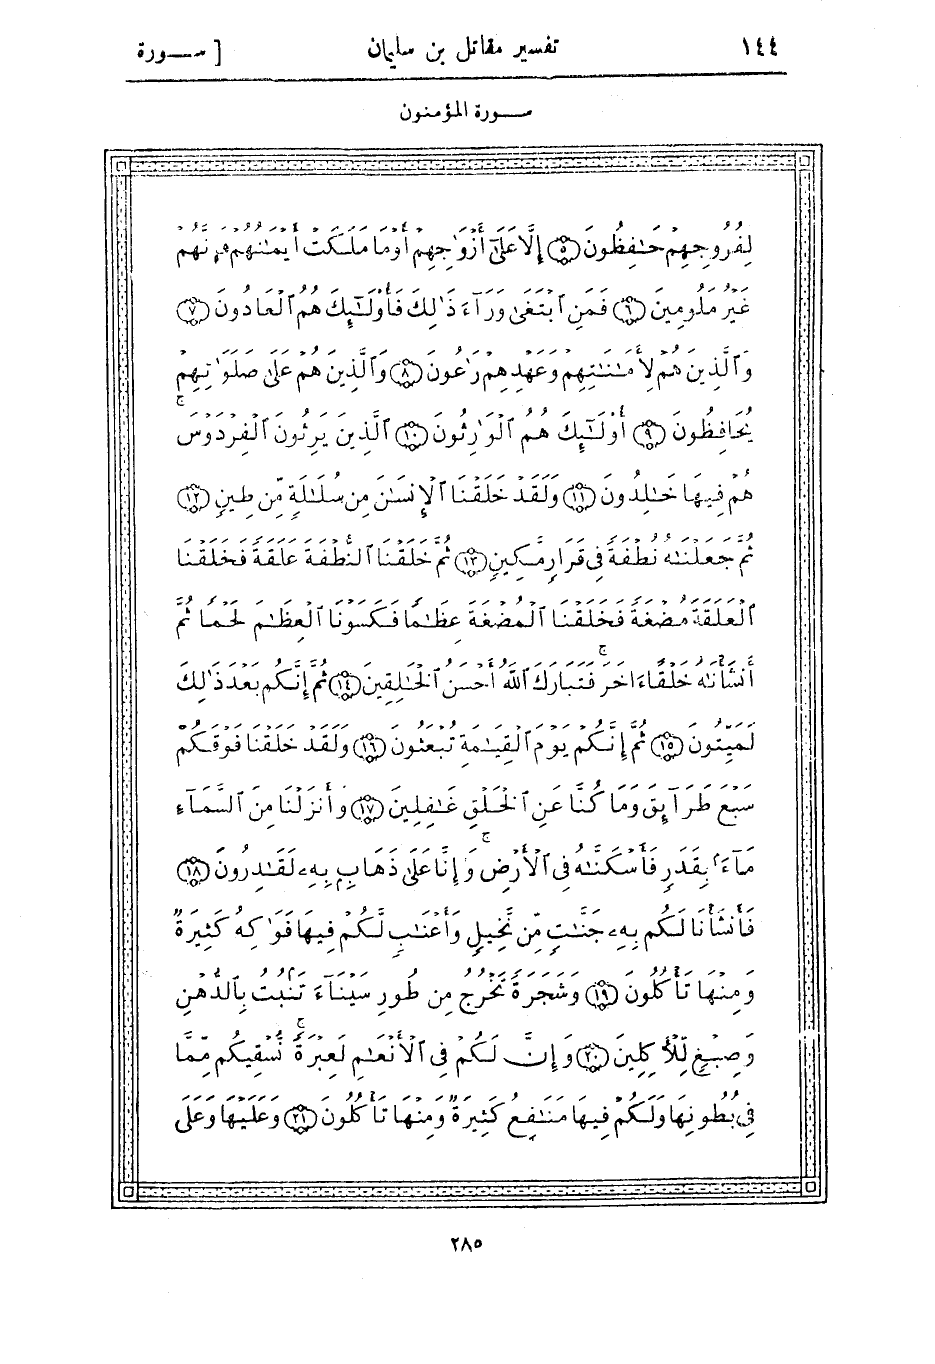 ١٤٤ تفسير مقاتل بن سليمان [ سـورة
سـورة المؤمنون
لِفُرُوجِهِمْ حَٰفِظُونَ ۝٥ إِلَّا عَلَىٰٓ أَزْوَٰجِهِمْ أَوْمَا مَلَكَتْ أَيْمَٰنُهُمْ فَإِنَّهُمْ
غَيْرُ مَلُومِينَ ۝٦ فَمَنِ ٱبْتَغَىٰ وَرَآءَ ذَٰلِكَ فَأُوْلَٰٓئِكَ هُمُ ٱلْعَادُونَ ۝٧
وَٱلَّذِينَ هُمْ لِأَمَٰنَٰتِهِمْ وَعَهْدِهِمْ رَٰعُونَ ۝٨ وَٱلَّذِينَ هُمْ عَلَىٰ صَلَوَٰتِهِمْ
يُحَافِظُونَ ۝٩ أُوْلَٰٓئِكَ هُمُ ٱلْوَٰرِثُونَ ۝١٠ ٱلَّذِينَ يَرِثُونَ ٱلْفِرْدَوْسَ
هُمْ فِيهَا خَٰلِدُونَ ۝١١ وَلَقَدْ خَلَقْنَا ٱلْإِنسَٰنَ مِن سُلَٰلَةٍ مِّن طِينٍ ۝١٢
ثُمَّ جَعَلْنَٰهُ نُطْفَةً فِى قَرَارٍ مَّكِينٍ ۝١٣ ثُمَّ خَلَقْنَا ٱلنُّطْفَةَ عَلَقَةً فَخَلَقْنَا
ٱلْعَلَقَةَ مُضْغَةً فَخَلَقْنَا ٱلْمُضْغَةَ عِظَٰمًا فَكَسَوْنَا ٱلْعِظَٰمَ لَحْمًا ثُمَّ
أَنشَأْنَٰهُ خَلْقًا ءَاخَرَ ۚ فَتَبَارَكَ ٱللَّهُ أَحْسَنُ ٱلْخَٰلِقِينَ ۝١٤ ثُمَّ إِنَّكُم بَعْدَ ذَٰلِكَ
لَمَيِّتُونَ ۝١٥ ثُمَّ إِنَّكُمْ يَوْمَ ٱلْقِيَٰمَةِ تُبْعَثُونَ ۝١٦ وَلَقَدْ خَلَقْنَا فَوْقَكُمْ
سَبْعَ طَرَآئِقَ وَمَا كُنَّا عَنِ ٱلْخَلْقِ غَٰفِلِينَ ۝١٧ وَأَنزَلْنَا مِنَ ٱلسَّمَآءِ
مَآءًۢ بِقَدَرٍ فَأَسْكَنَّٰهُ فِى ٱلْأَرْضِ ۚ وَإِنَّا عَلَىٰ ذَهَابٍۭ بِهِۦ لَقَٰدِرُونَ ۝١٨
فَأَنشَأْنَا لَكُم بِهِۦ جَنَّٰتٍ مِّن نَّخِيلٍ وَأَعْنَٰبٍ لَّكُمْ فِيهَا فَوَٰكِهُ كَثِيرَةٌ
وَمِنْهَا تَأْكُلُونَ ۝١٩ وَشَجَرَةً تَخْرُجُ مِن طُورِ سَيْنَآءَ تَنۢبُتُ بِٱلدُّهْنِ
وَصِبْغٍ لِّلْأَكِلِينَ ۝٢٠ وَإِنَّ لَكُمْ فِى ٱلْأَنْعَٰمِ لَعِبْرَةً ۖ نُّسْقِيكُم مِّمَّا
فِى بُطُونِهَا وَلَكُمْ فِيهَا مَنَٰفِعُ كَثِيرَةٌ وَمِنْهَا تَأْكُلُونَ ۝٢١ وَعَلَيْهَا وَعَلَى
٢٨٥